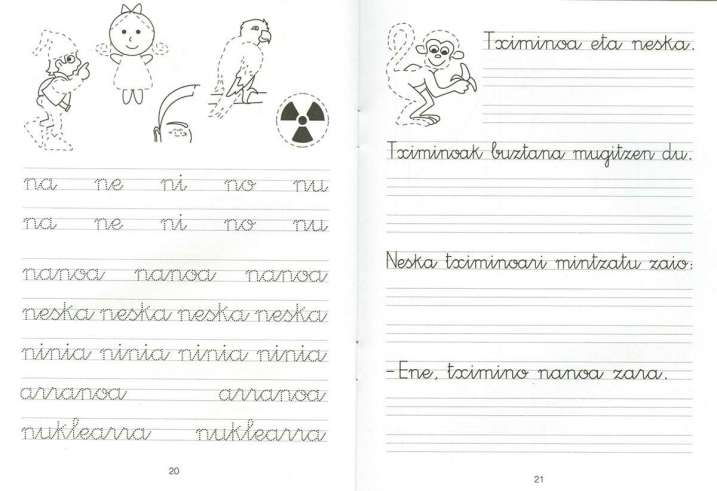 na ne ni no nu
na ne ni no nu
nanoa nanoa nanoa
neska neska neska neska
ninia ninia ninia ninia
arranoa arranoa
nuklearra nuklearra
20
Tximinoa eta neska.
Tximinoak buztana mugitzen du.
Neska tximinoari mintzatu zaio:
- Ene, tximino nanoa zara.
21